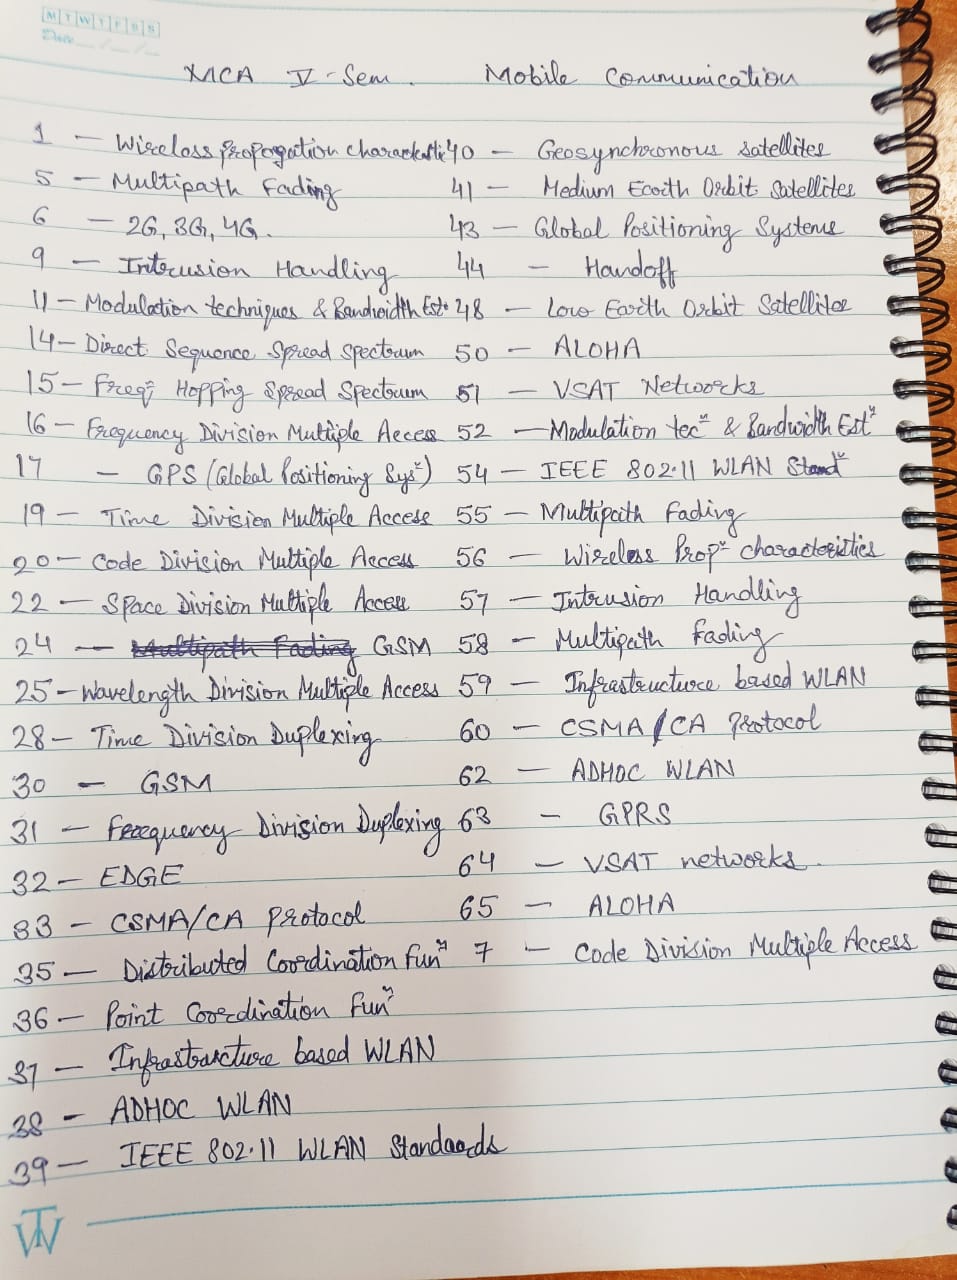 M T W T F S S
Date
XMCA V-Sem. Mobile Communication
1 — Wireless Propogation characteristic
5 — Multipath Fading
6 — 2G, 3G, 4G.
9 — Intrusion Handling
11 — Modulation techniques & Bandwidth Est.
14 — Direct Sequence Spread Spectrum
15 — Freqⁿ Hopping Spread Spectrum
16 — Frequency Division Multiple Access
17 — GPS (Global Positioning Sysⁿ)
19 — Time Division Multiple Access
20 — Code Division Multiple Access
22 — Space Division Multiple Access
24 — GSM
25 — Wavelength Division Multiple Access
28 — Time Division Duplexing
30 — GSM
31 — Frequency Division Duplexing
32 — EDGE
33 — CSMA/CA Protocol
35 — Distributed Coordination Funⁿ
36 — Point Coordination Funⁿ
37 — Infrastructure based WLAN
38 — ADHOC WLAN
39 — IEEE 802.11 WLAN Standards
40 — Geosynchronous satellites
41 — Medium Earth Orbit Satellites
43 — Global Positioning Systems
44 — Handoff
48 — Low Earth Orbit Satellites
50 — ALOHA
51 — VSAT Networks
52 — Modulation tecⁿ & Bandwidth Estⁿ
54 — IEEE 802.11 WLAN Standⁿ
55 — Multipath Fading
56 — Wireless Propⁿ characteristics
57 — Intrusion Handling
58 — Multipath Fading
59 — Infrastructure based WLAN
60 — CSMA/CA Protocol
62 — ADHOC WLAN
63 — GPRS
64 — VSAT networks.
65 — ALOHA
7 — Code Division Multiple Access